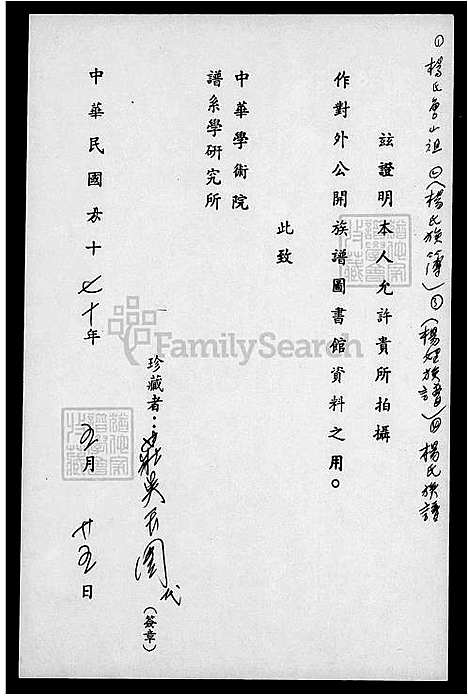 ① 楊氏魯山祖 ㊁(楊氏族簿) ③(楊姓族譜) 四 楊氏族譜
玆證明本人允許貴所拍攝
作對外公開族譜圖書館資料之用。
此致
中華學術院
譜系學研究所
珍藏者：莊吳 代
(簽章)
中華民國 十七十年 五月 廿五日
FamilySearch